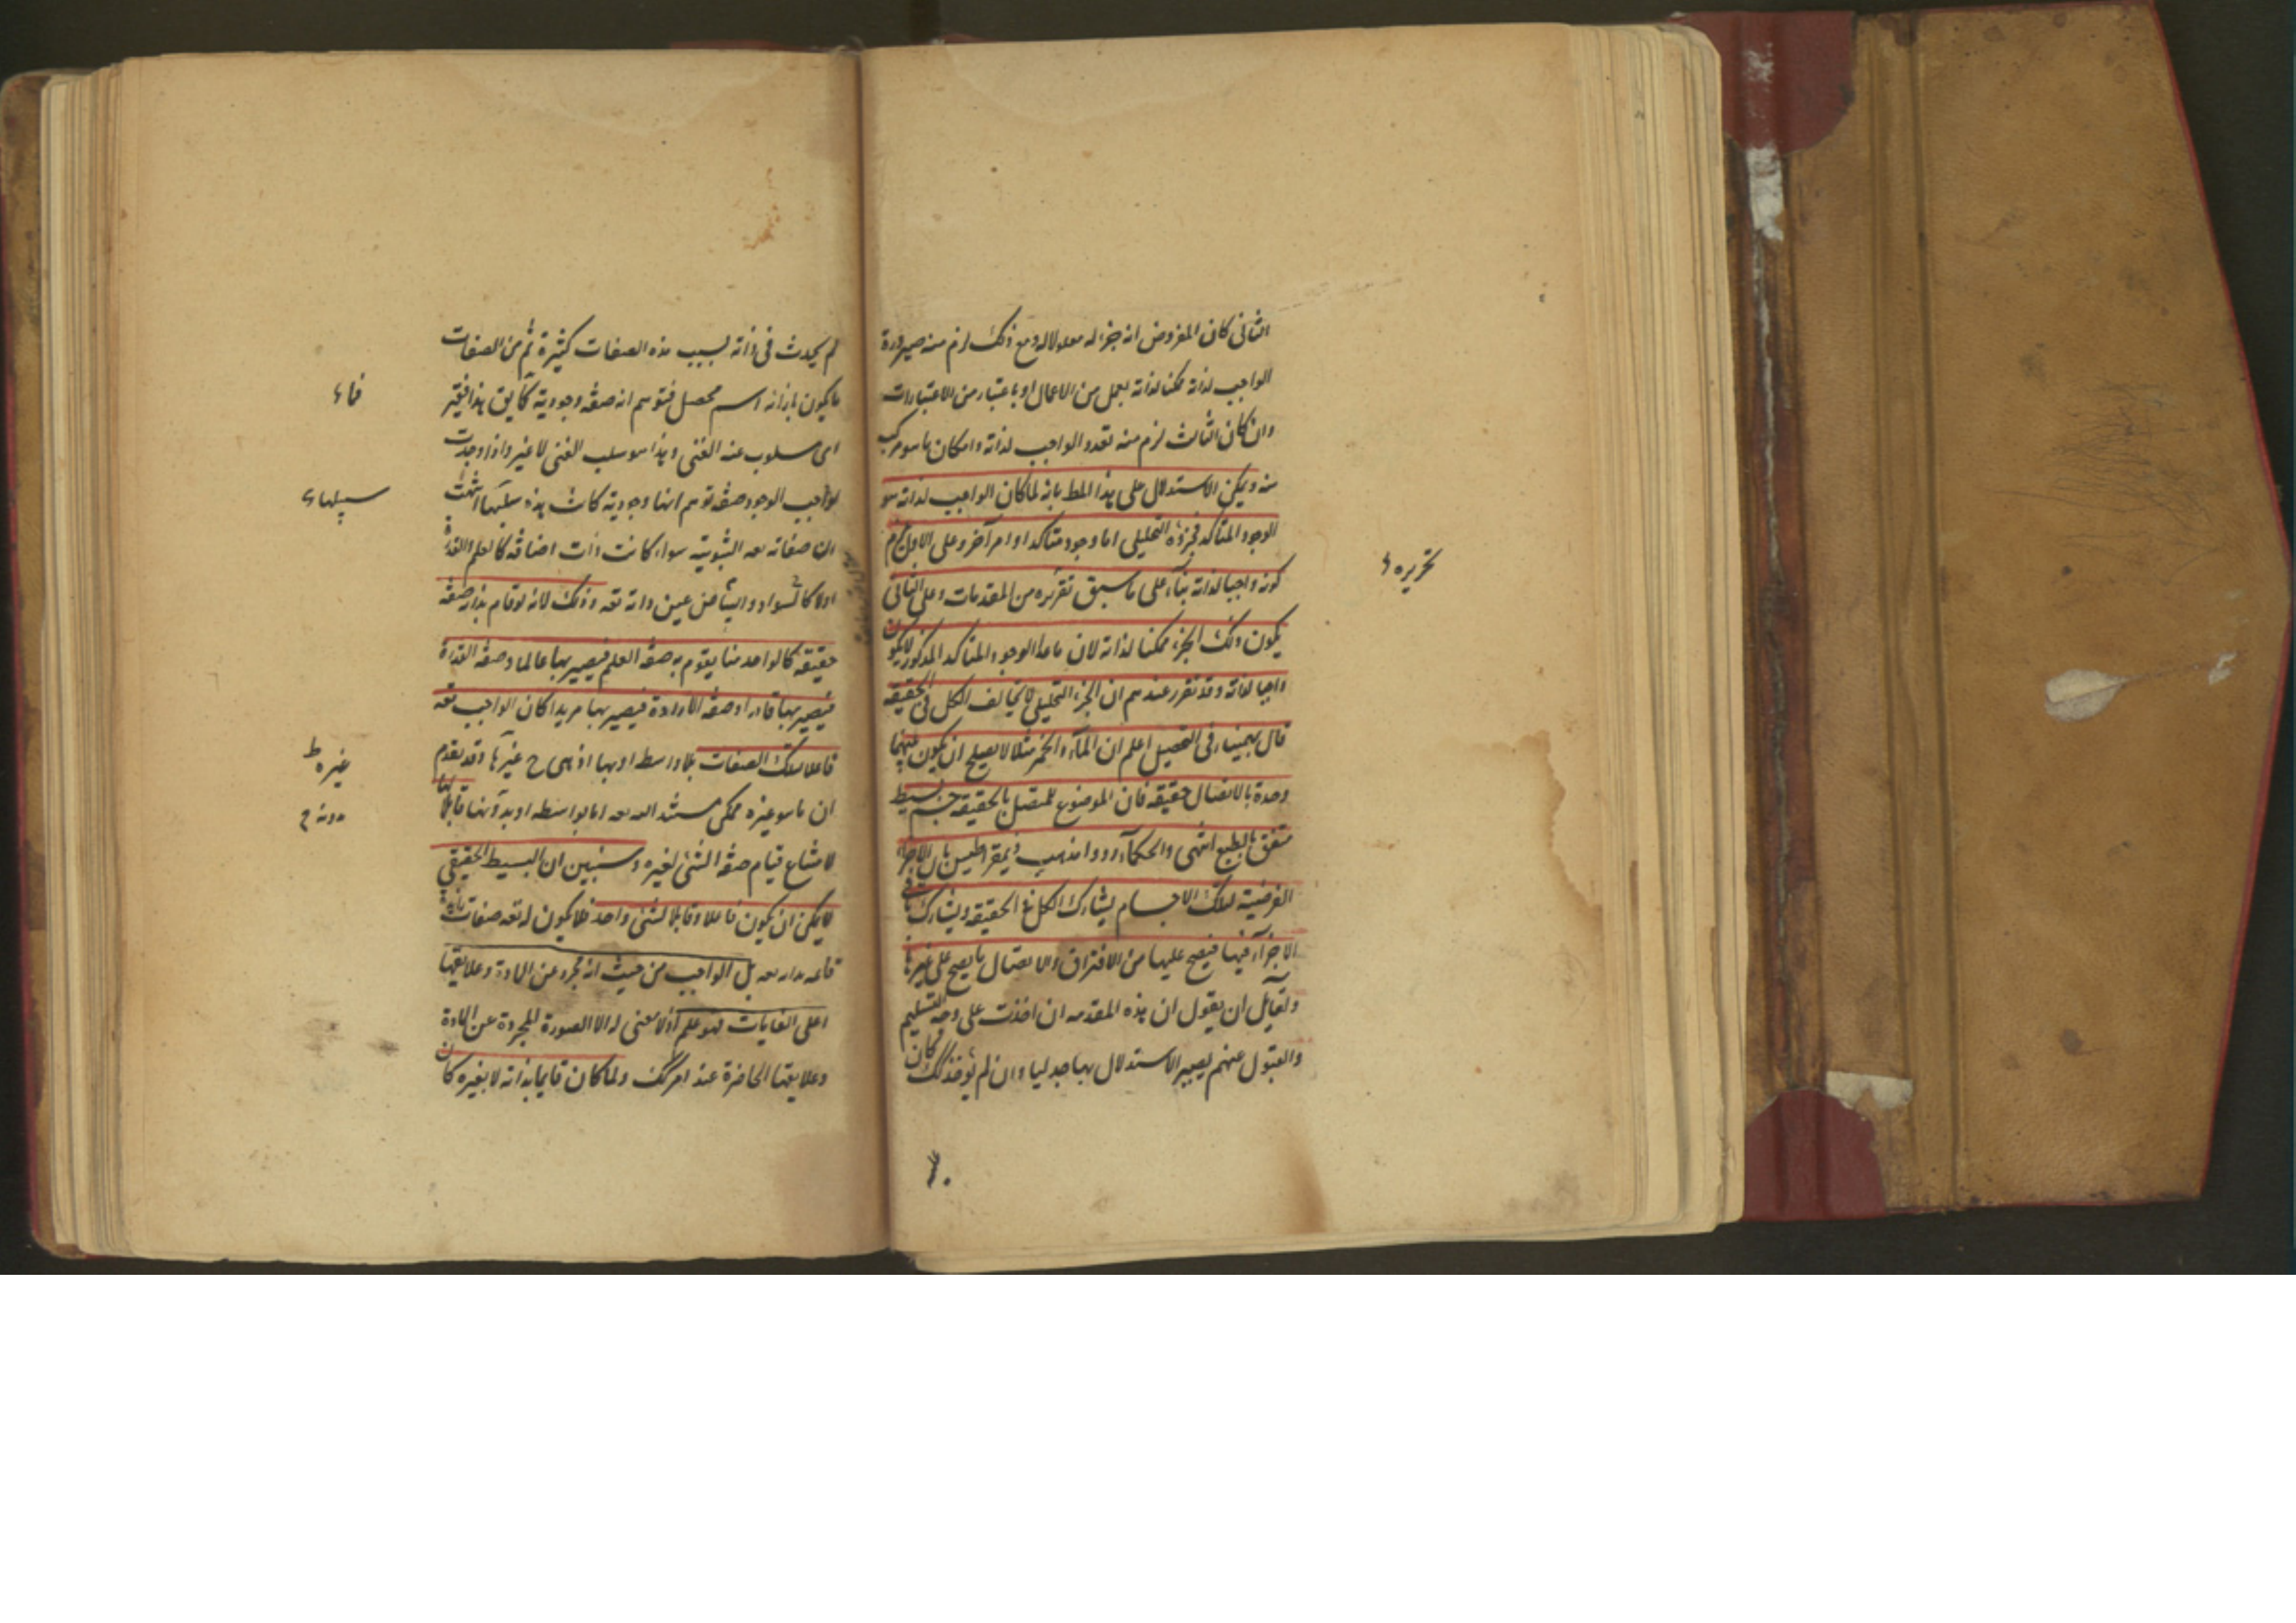 الثانى كان المفروض انه جزء له معلولا له ومع ذلك لزم منه صيرورة
الواجب لذاته ممكنا لذاته بعمل من الاعمال او باعتبار من الاعتبارات
وان كان الثالث لزم منه تعدد الواجب لذاته وامكان ما هو مركب
منه ويمكن الاستدلال على هذا المط بانه لما كان الواجب لذاته هو
الوجود المتاكد فجزؤه التحليلى اما وجود متاكد او امر آخر وعلى الاول لزم
كونه واجبا لذاته بناء على ما سبق تقريره من المقدمات وعلى الثانى
يكون ذلك الجزء ممكنا لذاته لان ما عدا الوجود المتاكد المذكور لا يكون
واجبا لذاته وقد تقرر عندهم ان الجزء التحليلى لا يخالف الكل فى الحقيقه
قال بهمنيار فى التحصيل اعلم ان الماء والخمر مثلا لا يصلح ان يكون بينهما
وحدة بالاتصال حقيقه فان الموضوع للمتصل بالحقيقه جسم بسيط
متفق بالطبع انتهى والحكماء ردوا مذهب ذيمقراطيس بان الاجزاء
الفرضية لتلك الاجسام يشارك الكل فى الحقيقه ويشارك باقى
الاجزاء فيها فيصح عليها من الافتراق والاتصال ما يصح على غيرها
ولقايل ان يقول ان هذه المقدمه ان اخذت على وجه التسليم
والقبول عنهم يصير الاستدلال بها جدليا وان لم تؤخذ كذلك كان
تحريره
لم يحدث فى ذاته بسبب هذه الصفات كثيرة ثم من الصفات
ما يكون بازائه اسم محصل فتوهم انه صفه وجودية كما يق هذا فقير
اى مسلوب عنه الغنى وهذا هو سلب الغنى لا غير واذا وجدت
لواجب الوجود صفه توهم انها وجودية كانت هذه سبيلها
ان صفاته تعه الثبوتية سواء كانت ذات اضافه كالعلم والقدرة
اولا كالسواد والبياض عين ذاته تعه وذلك لانه لو قام بذاته صفه
حقيقه كالواحد منا يقوم به صفه العلم فيصير بها عالما وصفه القدرة
فيصير بها قادرا وصفه الارادة فيصير بها مريدا كان الواجب تعه
فاعلا لتلك الصفات بلا واسطه او بها اذ هى ح غيره وقد تقدم
ان ما هو غيره ممكن مستند اليه تعه اما بواسطه او بدونها قابلا لها
لامتناع قيام صفه الشئ لغيره وسنبين ان البسيط الحقيقى
لا يمكن ان يكون فاعلا وقابلا لشئ واحد فلا يكون له تعه صفات
قائمه بذاته تعه بل الواجب من حيث انه مجرد عن المادة وعلايقها
اعلى الغايات فهو علم اذ لا معنى له الا الصورة المجردة عن المادة
وعلايقها الحاضرة عند امر مدرك ولما كان قايما بذاته لا بغيره كان
سبيلها
غيره ط